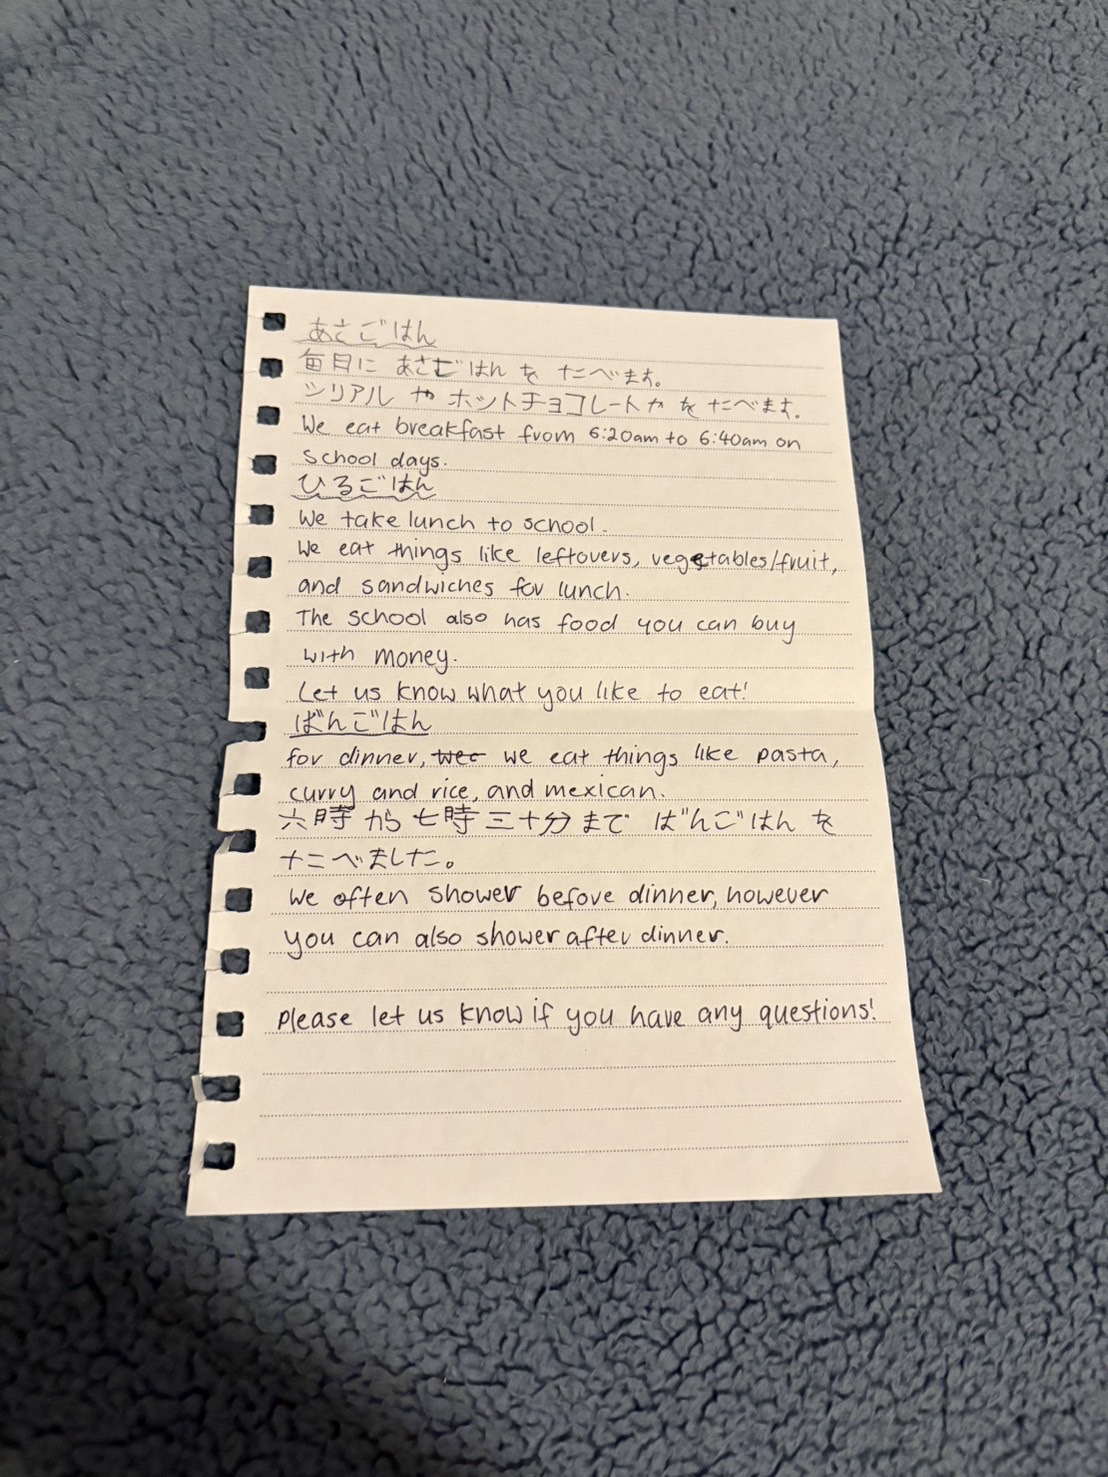 あさごはん
毎月に あさごはん を たべます。
シリアル や ホットチョコレートカ を たべます。
We eat breakfast from 6:20am to 6:40am on
school days.
ひるごはん
We take lunch to school.
We eat things like leftovers, vegetables/fruit,
and sandwiches for lunch.
The school also has food you can buy
with money.
Let us know what you like to eat!
ばんごはん
for dinner, we eat things like pasta,
curry and rice, and mexican.
六時 から 七時 三十分 まで ばんごはん を
たべました。
We often shower before dinner, however
you can also shower after dinner.
Please let us know if you have any questions!